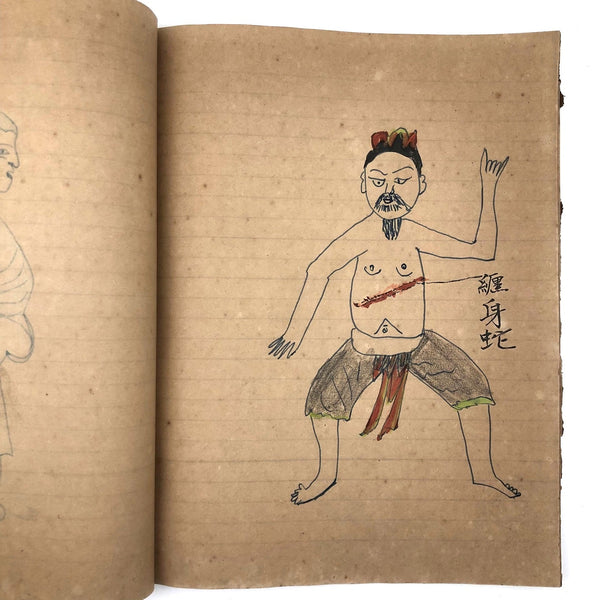 纏身蛇